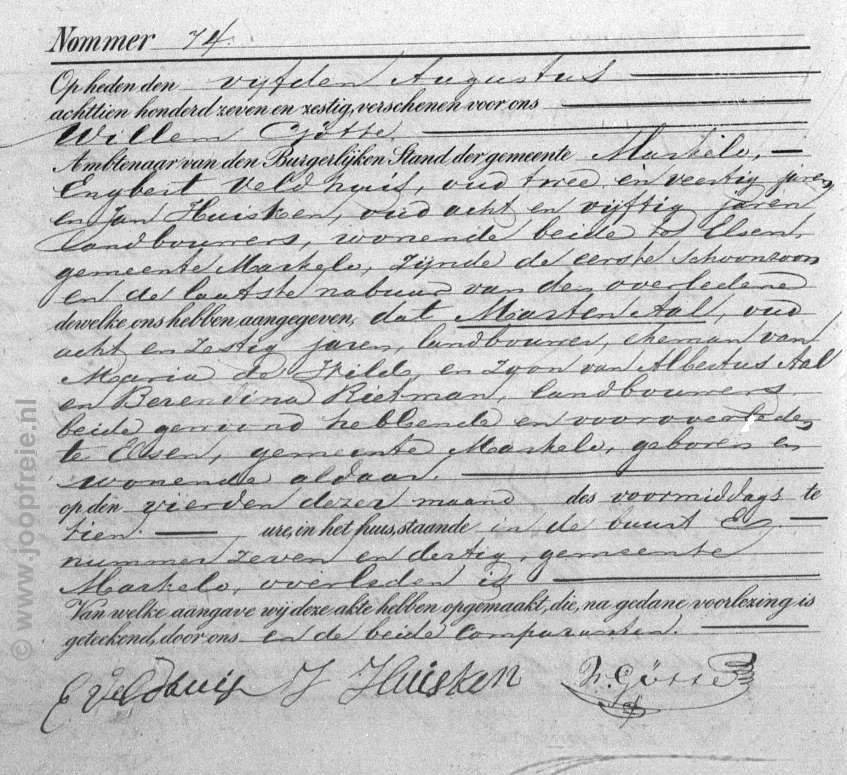 Nommer 74.
Op heden den vijfden Augustus
achttien honderd zeven en zestig, verschenen voor ons
Willem Götte,
Ambtenaar van den Burgerlijken Stand der gemeente Markelo,
Engbert Veldhuis, oud twee en veertig jaren
en Jan Huisken, oud acht en vijftig jaren
landbouwers, wonende beide te Elsen,
gemeente Markelo, zijnde de eerste schoonzoon
en de laatste nabuur van den overledene
dewelke ons hebben aangegeven, dat Marten Aal, oud
acht en zestig jaren, landbouwer, eheman van
Maria de Wilde, en zoon van Albertus Aal
en Berendina Rietman, landbouwers,
beide gewoond hebbende en vooroverleden
te Elsen, gemeente Markelo, geboren en
wonende aldaar.
op den vierden dezer maand des voormiddags te
tien ure, in het huis, staande in de buurt E,
nummer zeven en dertig, gemeente
Markelo, overleden is
Van welke aangave wij deze akte hebben opgemaakt, die, na gedane voorlezing is
geteekend, door ons en de beide comparanten.
E Veldhuis J Huisken W. Götte
© www.joopfreie.nl